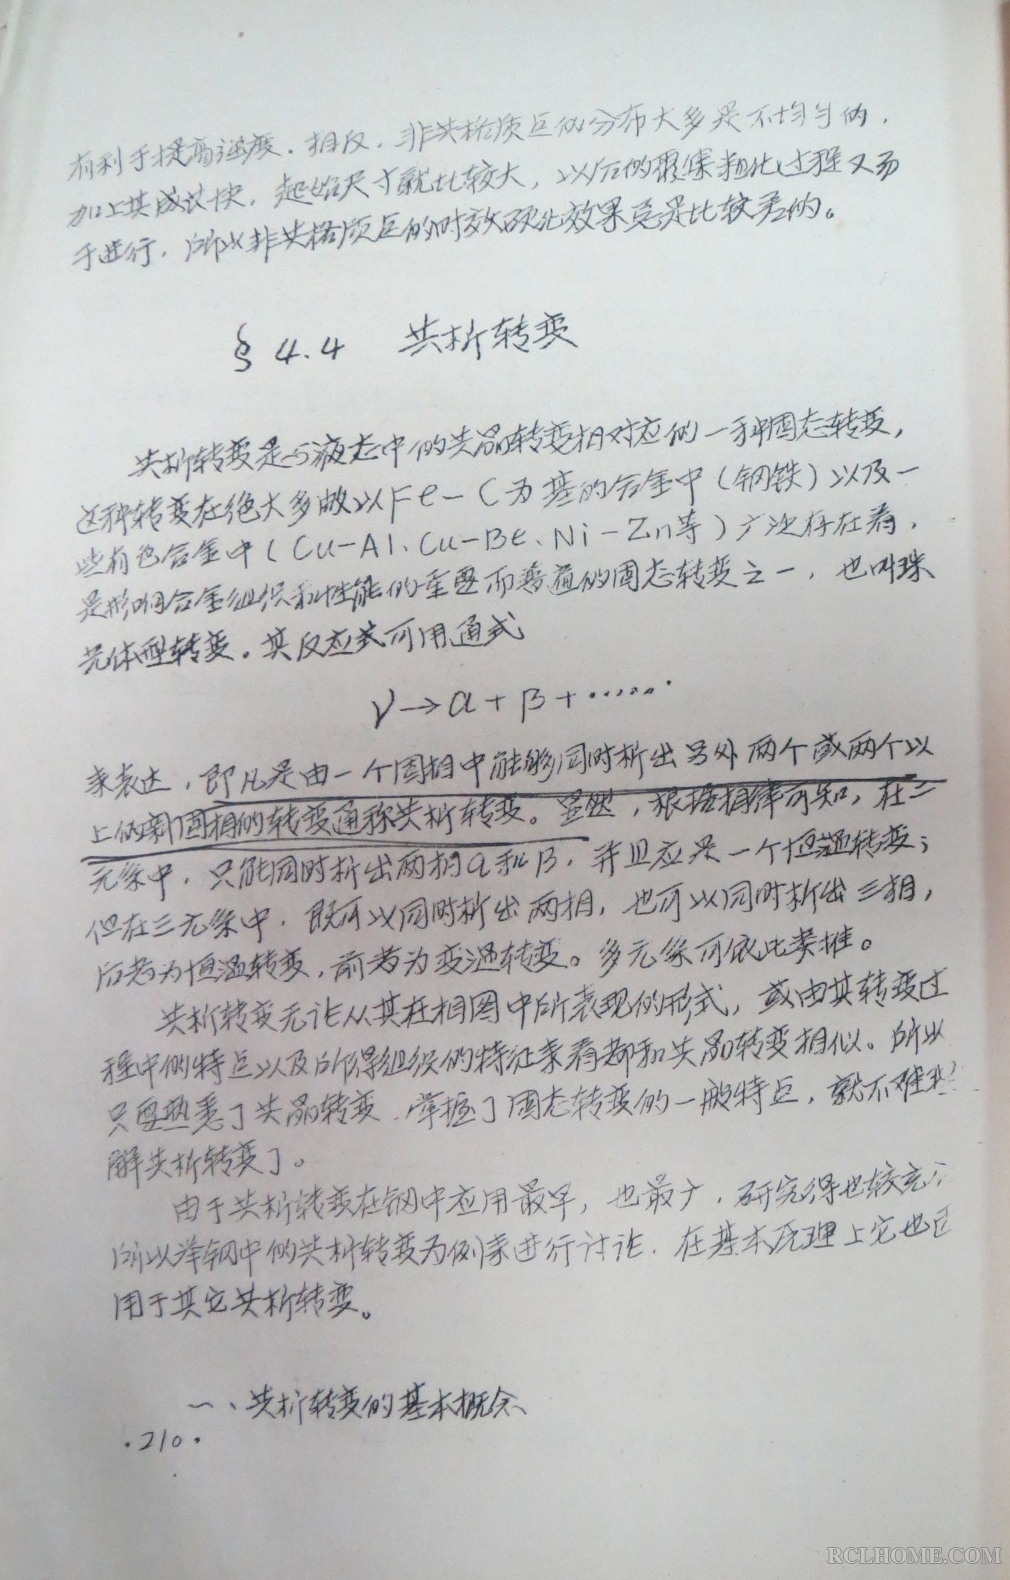 有利于提高强度．相反．非共格质点的分布大多是不均匀的．
加上其成长快．起始尺寸就比较大，以后的聚集粗化过程又易
于进行．所以非共格质点的时效硬化效果总是比较差的。
§4.4 共析转变
共析转变是与液态中的共晶转变相对应的一种固态转变，
这种转变在绝大多数以Fe-C为基的合金中（钢铁）以及一
些有色合金中（Cu-Al、Cu-Be、Ni-Zn等）广泛存在着，
是影响合金组织和性能的重要而普遍的固态转变之一，也叫珠
光体型转变。其反应式可用通式
γ→α+β+······
来表达，即凡是由一个固相中能够同时析出另外两个或两个以
上的新固相的转变通称共析转变。显然，根据相律可知，在二
元系中．只能同时析出两相α和β，并且应是一个恒温转变；
但在三元系中．既可以同时析出两相，也可以同时析出三相，
后者为恒温转变，前者为变温转变。多元系可依此类推。
共析转变无论从其在相图中所表现的形式，或由其转变过
程中的特点以及所得组织的特征来看都和共晶转变相似。所以
只要熟悉了共晶转变．掌握了固态转变的一般特点，就不难
解共析转变了。
由于共析转变在钢中应用最早，也最广．研究得也较充
所以举钢中的共析转变为例来进行讨论．在基本原理上它也
用于其它共析转变。
一、共析转变的基本概念
·210·
RCLHOME.COM